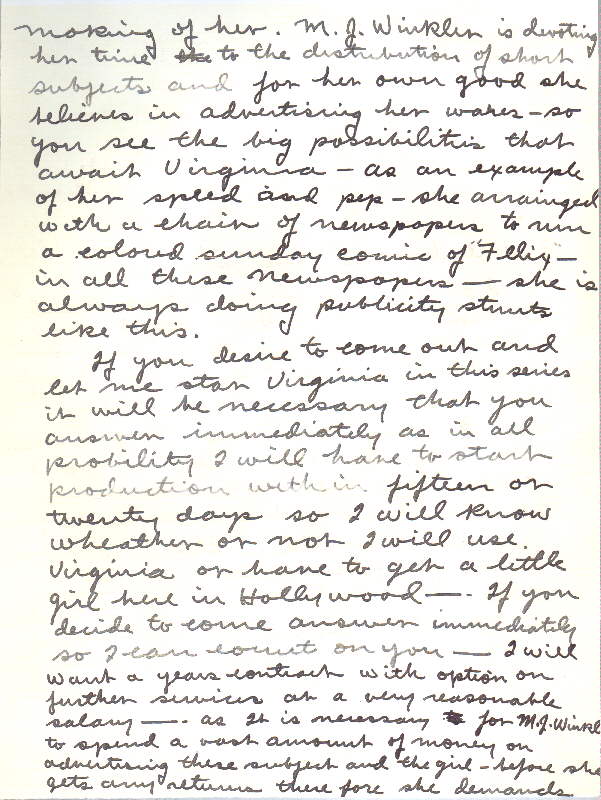 making of her. M.J. Winkler is devoting
her time to the distribution of short
subjects and for her own good she
believes in advertising her wares - so
you see the big possibilities that
await Virginia - as an example
of her speed and pep - she arrainged
with a chain of newspapers to run
a colored sunday comic of "Felix" -
in all these newspapers - she is
always doing publicity stunts
like this.
If you desire to come out and
let me star Virginia in this series
it will be necessary that you
answer immediately as in all
probility I will have to start
production with in fifteen or
twenty days so I will know
wheather or not I will use
Virginia or have to get a little
girl here in Hollywood -. If you
decide to come answer immediately
so I can count on you - I will
want a years contract with option on
further services at a very reasonable
salary -. as It is necessary for M.J. Winkl
to spend a vast amount of money on
advertising these subject and the girl - before she
gets any returns there fore she demands